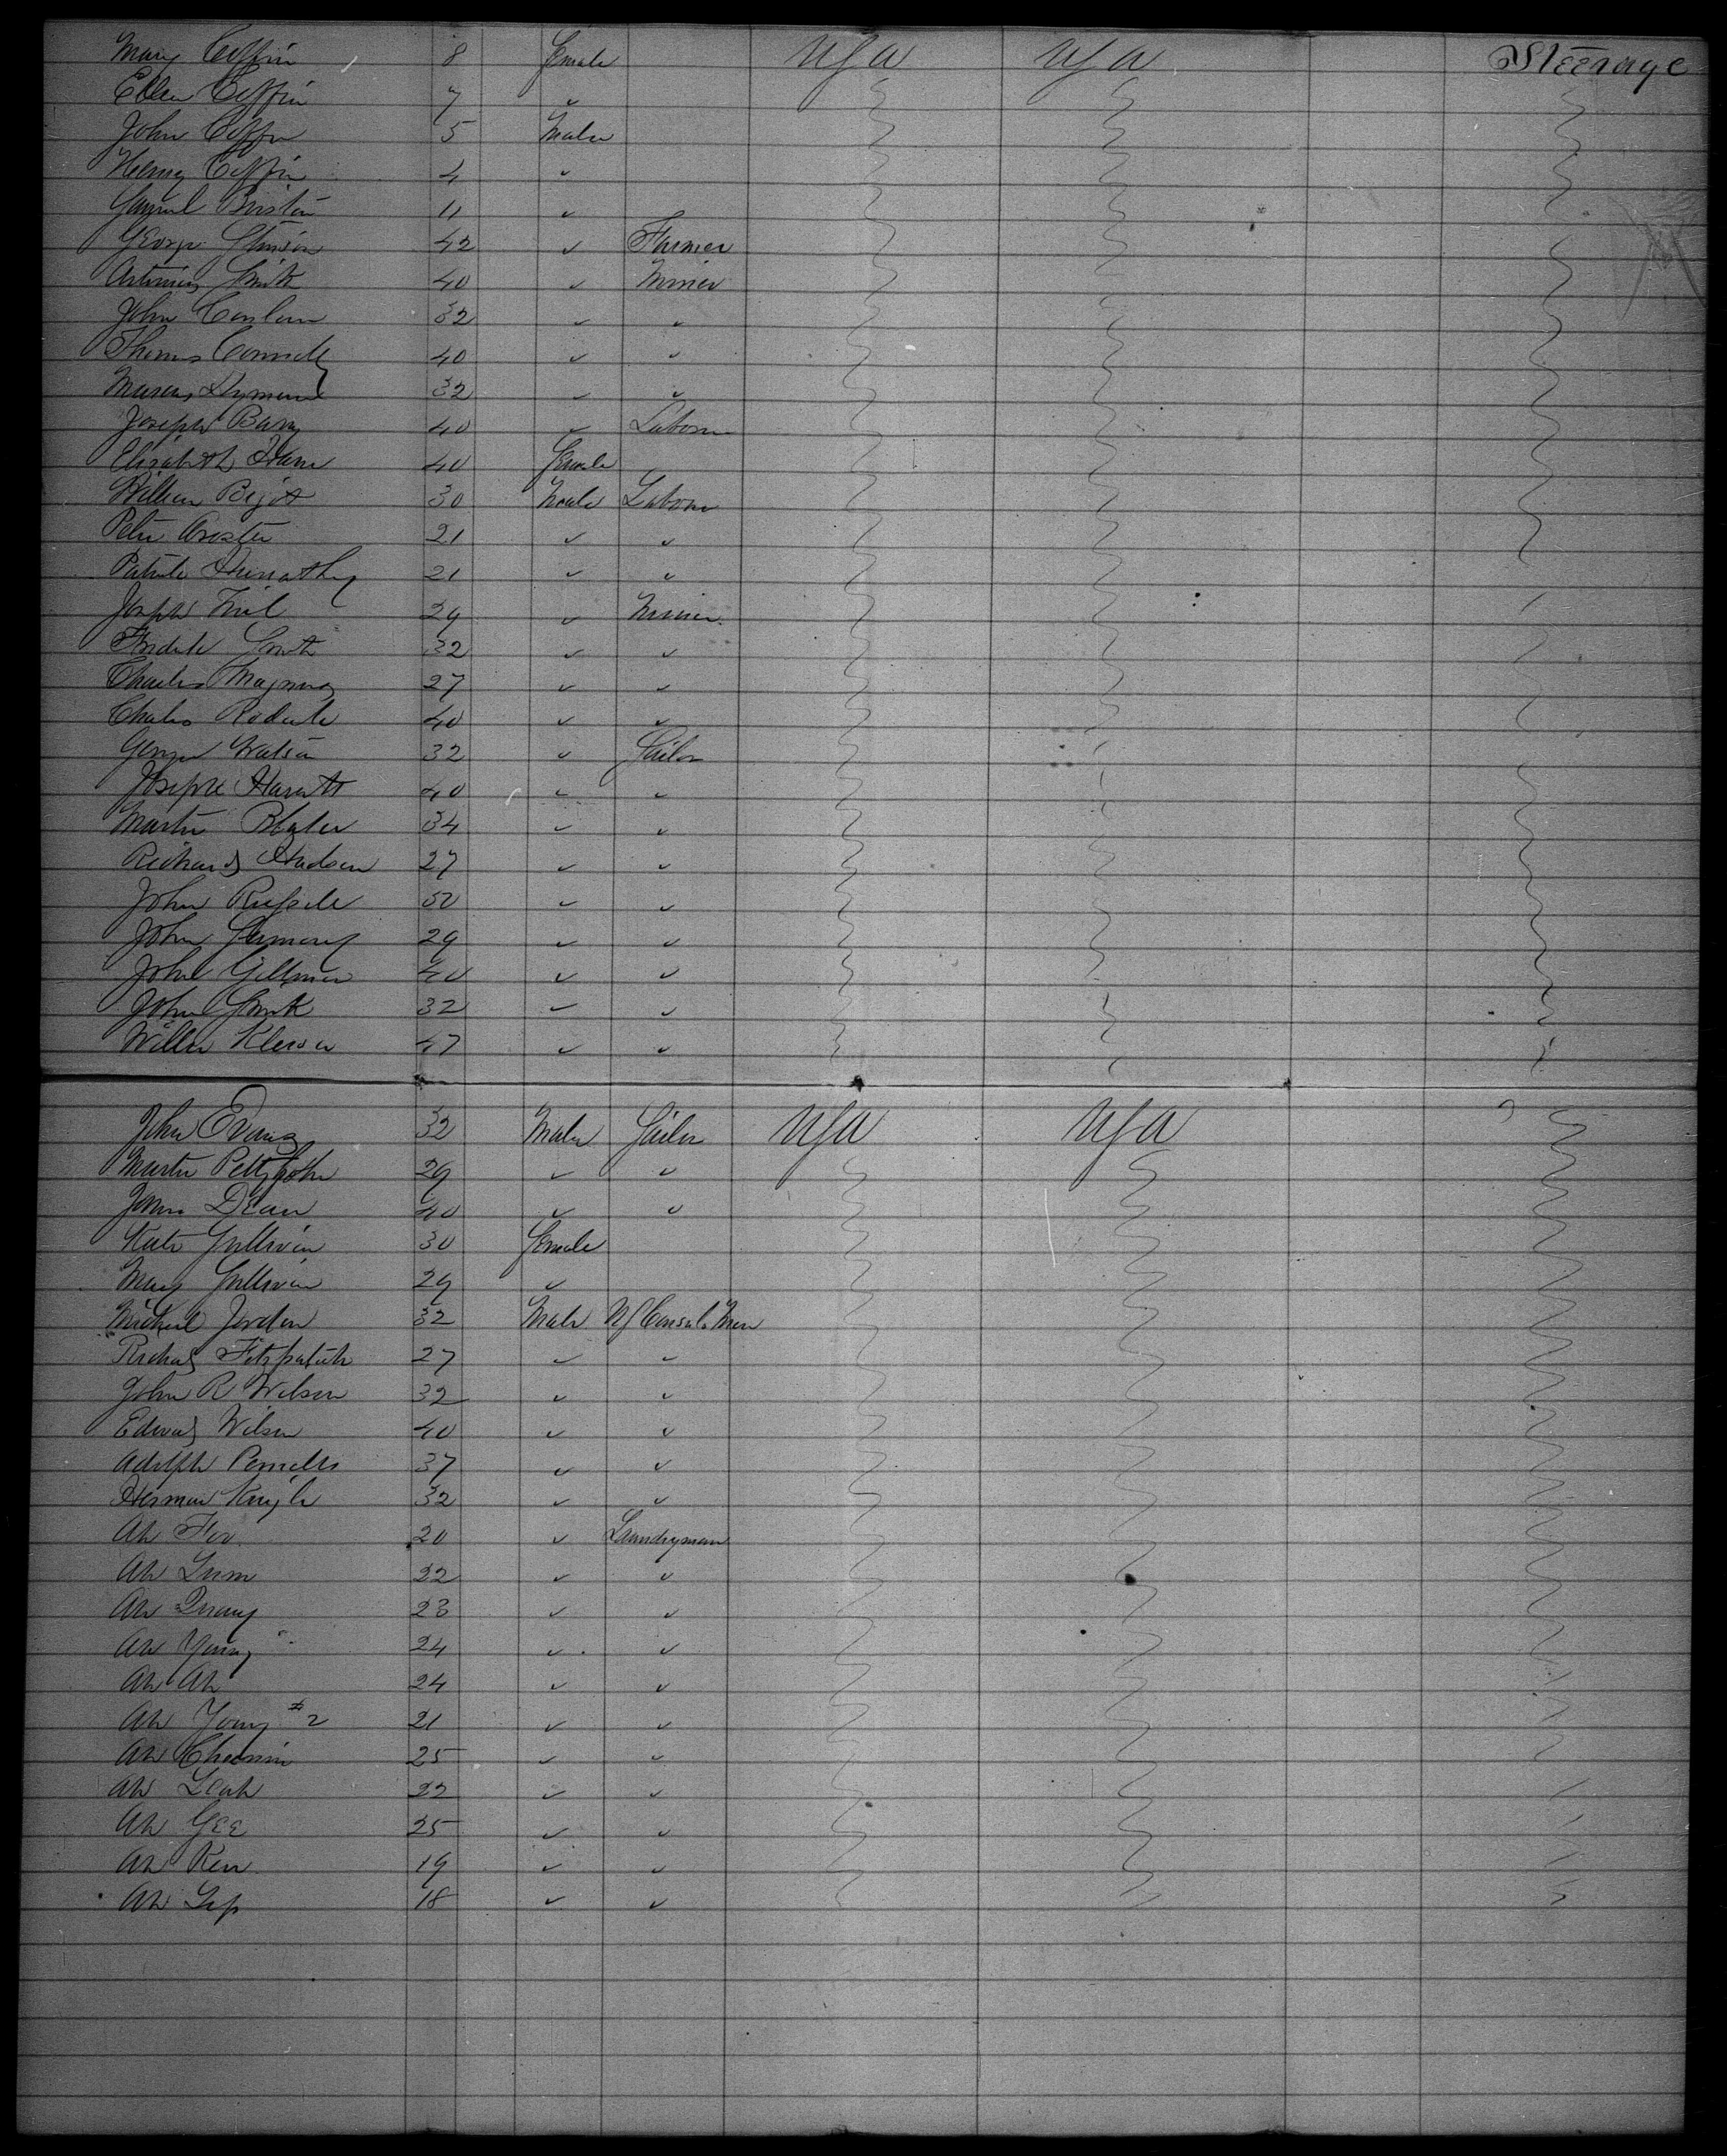 Mary Coffin 8 Female USA USA Steerage
Ellen Coffin 7 ✓
John Coffin 5 Male
Henry Coffin 4 ✓
Samuel 11 ✓
George Stinson 42 ✓ Farmer
Smith 40 ✓ Miner
John Conlon 32 ✓ ✓
Thomas Connolly 40 ✓ ✓
32 ✓ ✓
Joseph Barry 40 ✓ Laborer
Elizabeth 40 Female
William 30 Male Laborer
Peter 21 ✓ ✓
Patrick 21 ✓ ✓
Joseph 29 ✓ Miner
Smith 32 ✓ ✓
Charles 27 ✓ ✓
Charles 40 ✓ ✓
George Watson 32 ✓ Sailor
Joseph 40 ✓ ✓
Martin 34 ✓ ✓
Richard Hudson 27 ✓ ✓
John Russell 50 ✓ ✓
John 29 ✓ ✓
John Gillman 40 ✓ ✓
John Smith 32 ✓ ✓
47 ✓ ✓
John Evans 32 Male Sailor USA USA
Martin Pettyjohn 29 ✓ ✓
James Dean 40 ✓ ✓
Kate Sullivan 30 Female
Mary Sullivan 29 ✓
Michael Jordan 32 Male US Consuls Men
Richard Fitzpatrick 27 ✓ ✓
John R Wilson 32 ✓ ✓
Edward Wilson 40 ✓ ✓
Adolph 37 ✓ ✓
Herman 32 ✓ ✓
Ah Foo 20 ✓ Laundryman
Ah Lum 22 ✓ ✓
Ah 23 ✓ ✓
Ah Young 24 ✓ ✓
Ah Ah 24 ✓ ✓
Ah Young #2 21 ✓ ✓
Ah 25 ✓ ✓
Ah Leah 22 ✓ ✓
Ah Gee 25 ✓ ✓
Ah Ken 19 ✓ ✓
Ah 18 ✓ ✓